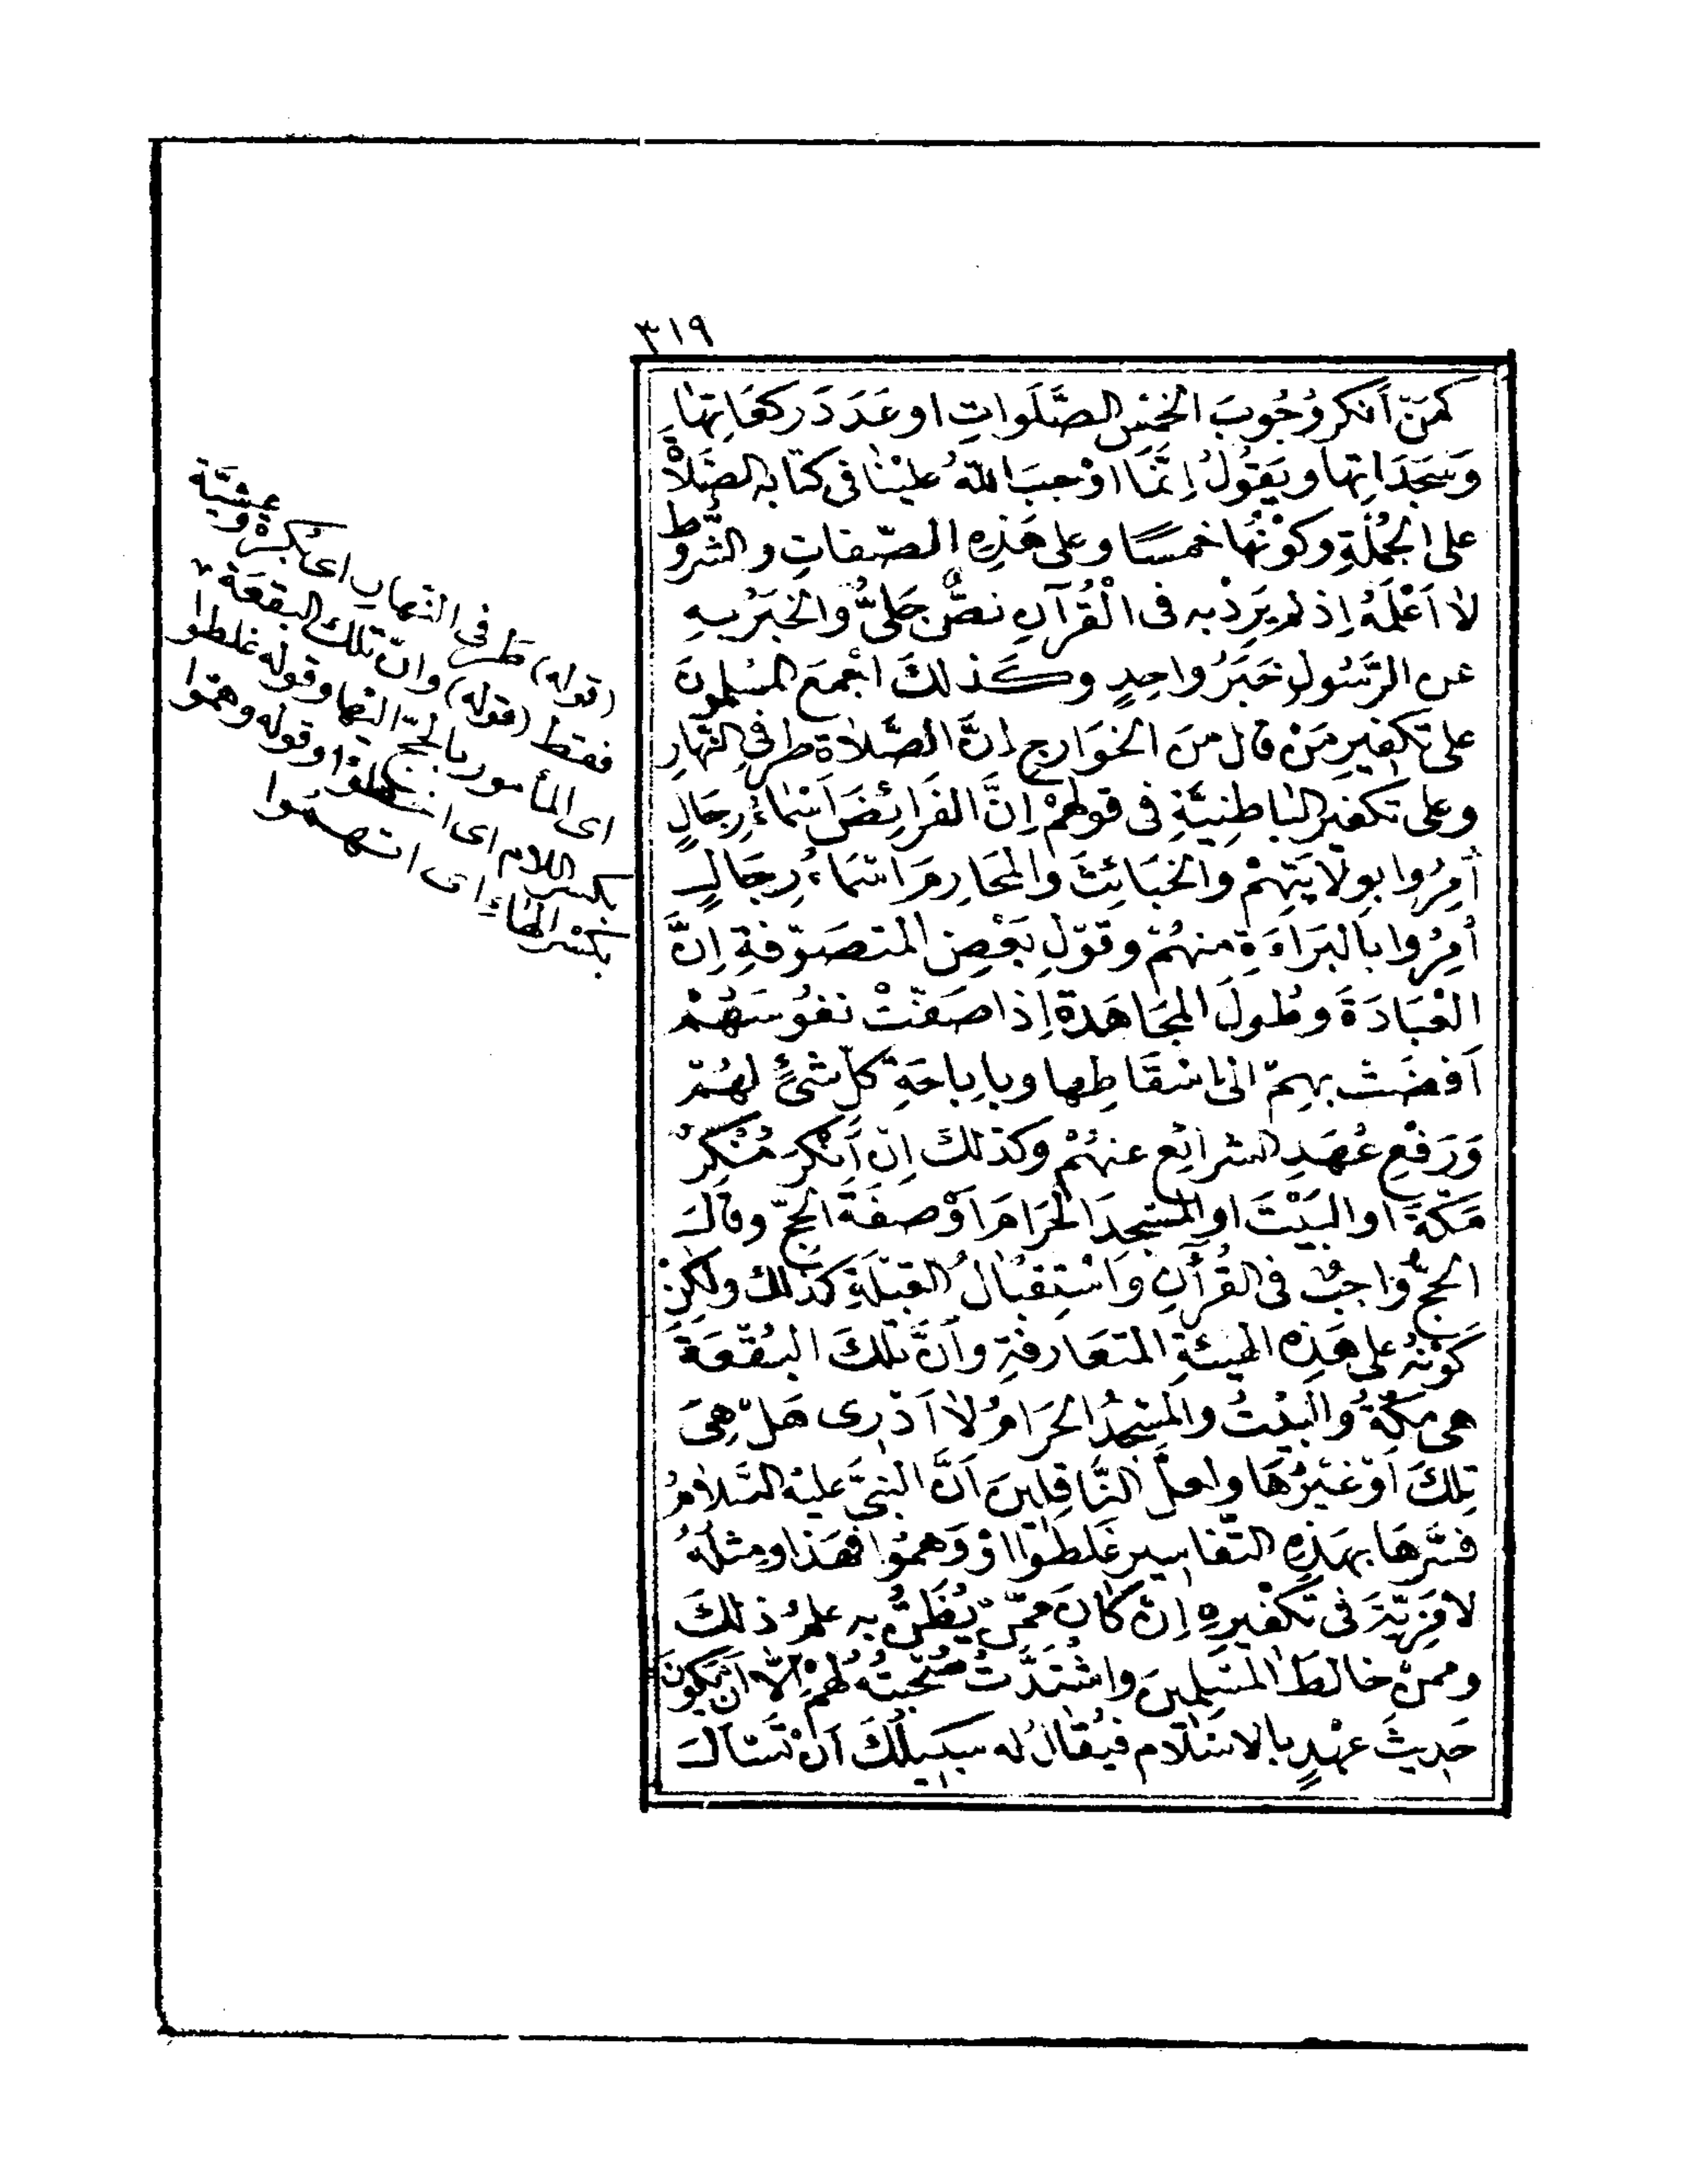 ٣١٩
كَمَنْ أَنْكَرَ وُجُوبَ الخَمْسِ الصَّلَوَاتِ اوعَدَدَ رَكَعَاتِهَا
وَسَجَدَاتِهَا وَيَقُولُ إِنَّمَا اوْجَبَ اللّٰهُ عَلَيْنَا فى كِتَابِه الصَّلَاةَ
على الجُمْلَةِ وكَوْنُهَا خَمْسًا وعلى هَذِهِ الصِّفَاتِ والشُّرُوطِ
لَا أَعْلَمُهُ إِذ لم يَرِدْ به فى الْقُرْآنِ نَصٌّ جَلِىٌّ وَالخَبَرُ بِهِ
عن الرَّسُولِ خَبَرُ واحِدٍ وكَذلكَ أُجْمَعَ المُسْلِمُونَ
على تَكْفِيرِ مَنْ قال مِنَ الخَوَارِجِ إنَّ الصَّلَاةَ طَرَفَىِ النَّهَارِ
وعلى تَكْفِيرِ البَاطِنِيَّةِ فى قولِهِمْ إنَّ الفَرَائِضَ أَسْمَاءُ رِجَالٍ
أُمِرُوا بِوِلَايَتِهِمْ والخَبَائِثَ وَالمَحَارِمَ اسْمَاءُ رِجَالٍ
أُمِرُوا بِالْبَرَاءَةِ مِنهُمْ وقَوْلِ بَعْضِ المتصَوِّفَةِ إِنَّ
الْعِبَادَةَ وطُولَ المجَاهَدَةِ إِذا صَفَّتْ نفُوسَهُمْ
أَفْضَتْ بِهِمْ الى إِسْقَاطِها وبإِباحَةِ كلِّ شَىْءٍ لَهُمْ
وَرَفْعِ عُهَدِ الشرائِعِ عنهُمْ وكذلكَ إنْ أَنْكَرَ مُنْكِرٌ
مَكَّةَ او البَيْتَ او المسْجِدَ الحَرَامَ أوْ صِفَةَ الحَجِّ وقالَ
الحَجُّ وَاجِبٌ فى القُرْآنِ وَاسْتِقْبَالُ القِبْلَةِ كذلك ولكِنْ
كَوْنُهُ على هَذِهِ الهَيْئَةِ المتَعَارَفَةِ وأَنَّ تلكَ البُقْعَةَ
هى مَكَّةُ وَالْبَيْتُ والْمَسْجِدُ الحَرَامُ لَا أَدْرِى هَلْ هِىَ
تِلْكَ أَوْ غَيْرُهَا ولعلَّ النَّاقِلِينَ أَنَّ النبىَّ عليْه السَّلَامُ
فَسَّرَهَا بِهَذِهِ التَّفاسِيرِ غَلِطُوا اوْ وَهِمُوا فهَذا ومِثْلُهُ
لا مِرْيَةَ فى تَكْفِيرِهِ إِنْ كَانَ مِمَّنْ يُظَنُّ به عِلْمُ ذلكَ
وممنْ خالَطَ المسْلِمِينَ واشْتَدَّتْ صُحْبَتُهُ لهُمْ إِلَّا أَنْ يَكُونَ
حَدِيثَ عَهْدٍ بالاسْلَامِ فيُقَالُ له سَبِيلُكَ أَنْ تَسْأَلَ
(قوله) طرفى النهار اى بُكرة وعشيّة
فقط (قوله) وانّ تلك البقعَة
اى المأمور بالحجّ اليها وقوله غلطوا
بكسر اللام اى اخطؤا وقوله وهموا
بكسْر الهاءِ اى اتهموا